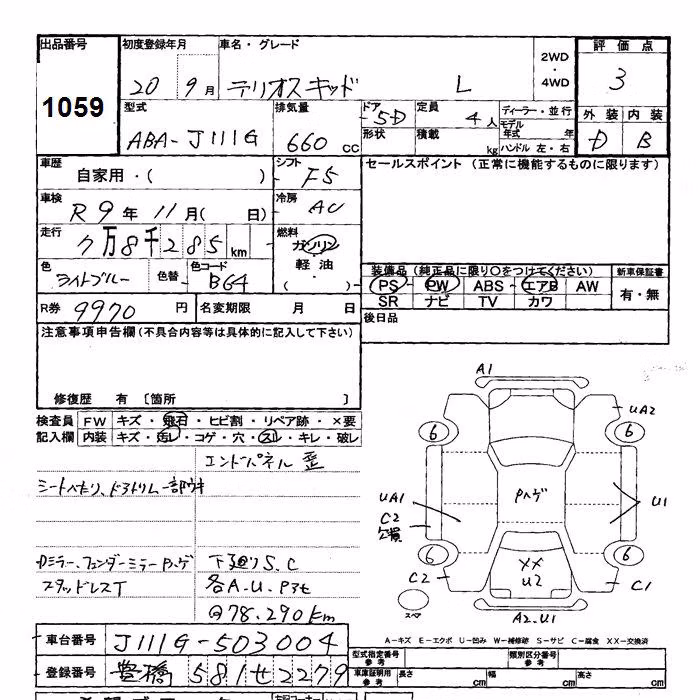 出品番号 初度登録年月 車名・グレード 2WD・4WD 評価点
1059 20 9月 テリオスキッド L 3
型式 排気量 ドア 定員 ディーラー・並行 外装 内装
ABA-J111G 660 cc 5D 4人 モデル年式 年 D B
形状 積載 kg ハンドル 左・右
車歴 シフト セールスポイント (正常に機能するものに限ります)
自家用・( ) F5
車検 冷房
R9年 11月( 日) AC
走行 燃料
7万8千285km ガソリン
軽油
・( )
色 色替 色コード 装備品 (純正品に限り○をつけてください) 新車保証書
ライトブルー B64 PS・PW・ABS・エアB AW 有・無
SR ナビ TV カワ
R券 9970円 名変期限 月 日 後日品
注意事項申告欄(不具合内容等は具体的に記入して下さい)
修復歴 有 〔箇所 〕
検査員 FW キズ・飛石・ヒビ割・リペア跡・×要
記入欄 内装 キズ・汚レ・コゲ・穴・スレ・キレ・破レ
エンドパネル 歪
シートへたり、ドアトリム一部ウキ
ミラー、フェンダーミラーPハゲ 下廻りS.C
スタッドレスT 各A.U.Pアセ
@78.290km
A1
UA2
6 6
UA1 Pハゲ U1
C2
欠損
6 XX 6
C2 U2 C1
スペア A2.U1
A-キズ E-エクボ U-凹み W-補修跡 S-サビ C-腐食 XX-交換済
車台番号 J111G-503004 型式指定番号 参考 類別区分番号 参考
登録番号 豊橋 581せ2279 車庫証明用 参考 長さ cm 幅 cm 高さ cm